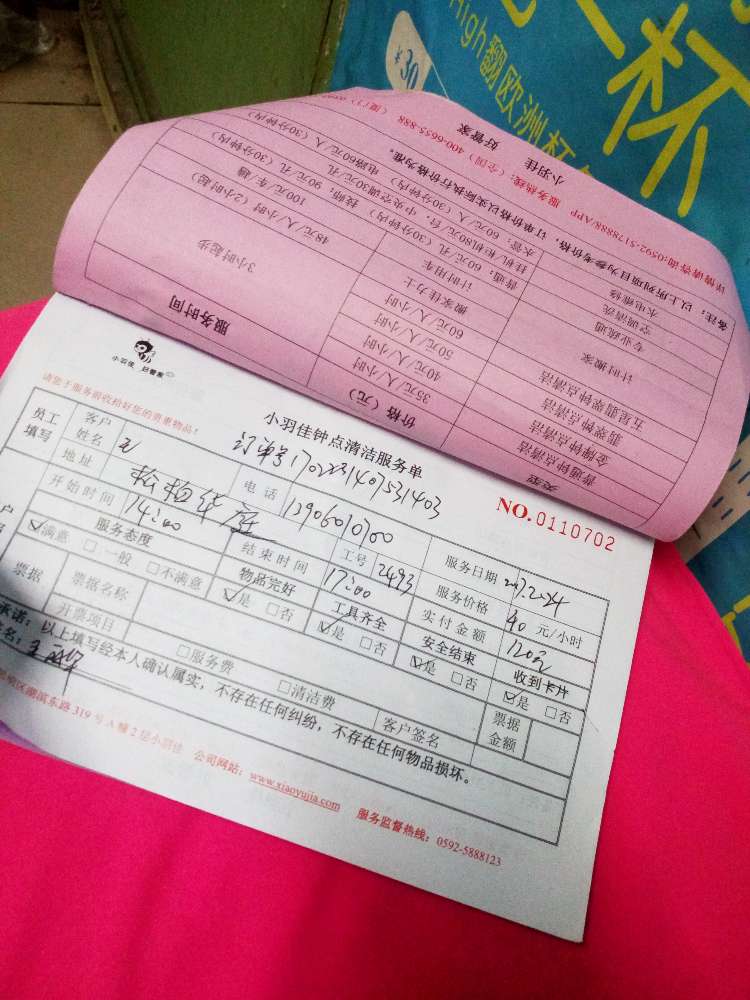 杯
High翻欧洲杯
¥30
详情请咨询:0592-5178888/APP 服务热线:(全国)400-6655-888 (厦门)
小羽佳 好管家
备注:以上所列项目为参考价格,订单价格以实际执行价格为准。
水电维修 水管:60元/人(30分钟内) 电路60元/人(30分钟内)
空调清洗 挂机/柜机80元/台,中央空调30元/孔
专业疏通 普通:60元/孔(30分钟内) 技师:90元/孔(30分钟内)
计时搬家 计时用车 100元/车/趟
搬家佳力士 48元/人/小时(2小时起)
五星翡翠钟点清洁 60元/人/小时
翡翠钟点清洁 50元/人/小时
金牌钟点清洁 40元/人/小时
普通钟点清洁 35元/人/小时
3小时起步
类型 价格(元) 服务时间
小羽佳 好管家
请您于服务前收拾好您的贵重物品!
小羽佳钟点清洁服务单
订单号1702231407531403
NO.0110702
员工填写 客户姓名 王 电话 13906010700 服务日期 2017.2.24
地址 松柏华庭 工号 2493 服务价格 40 元/小时
开始时间 14:00 结束时间 17:00 实付金额 120元
服务态度 物品完好 工具齐全 安全结束 收到卡片
☑满意 □一般 □不满意 ☑是 □否 ☑是 □否 ☑是 □否 ☑是 □否
票据 票据名称 □服务费 □清洁费 票据金额
开票项目 客户签名
承诺:以上填写经本人确认属实,不存在任何纠纷,不存在任何物品损坏。
区湖滨东路319号A幢2层小羽佳 公司网站:www.xiaoyujia.com 服务监督热线:0592-5888123